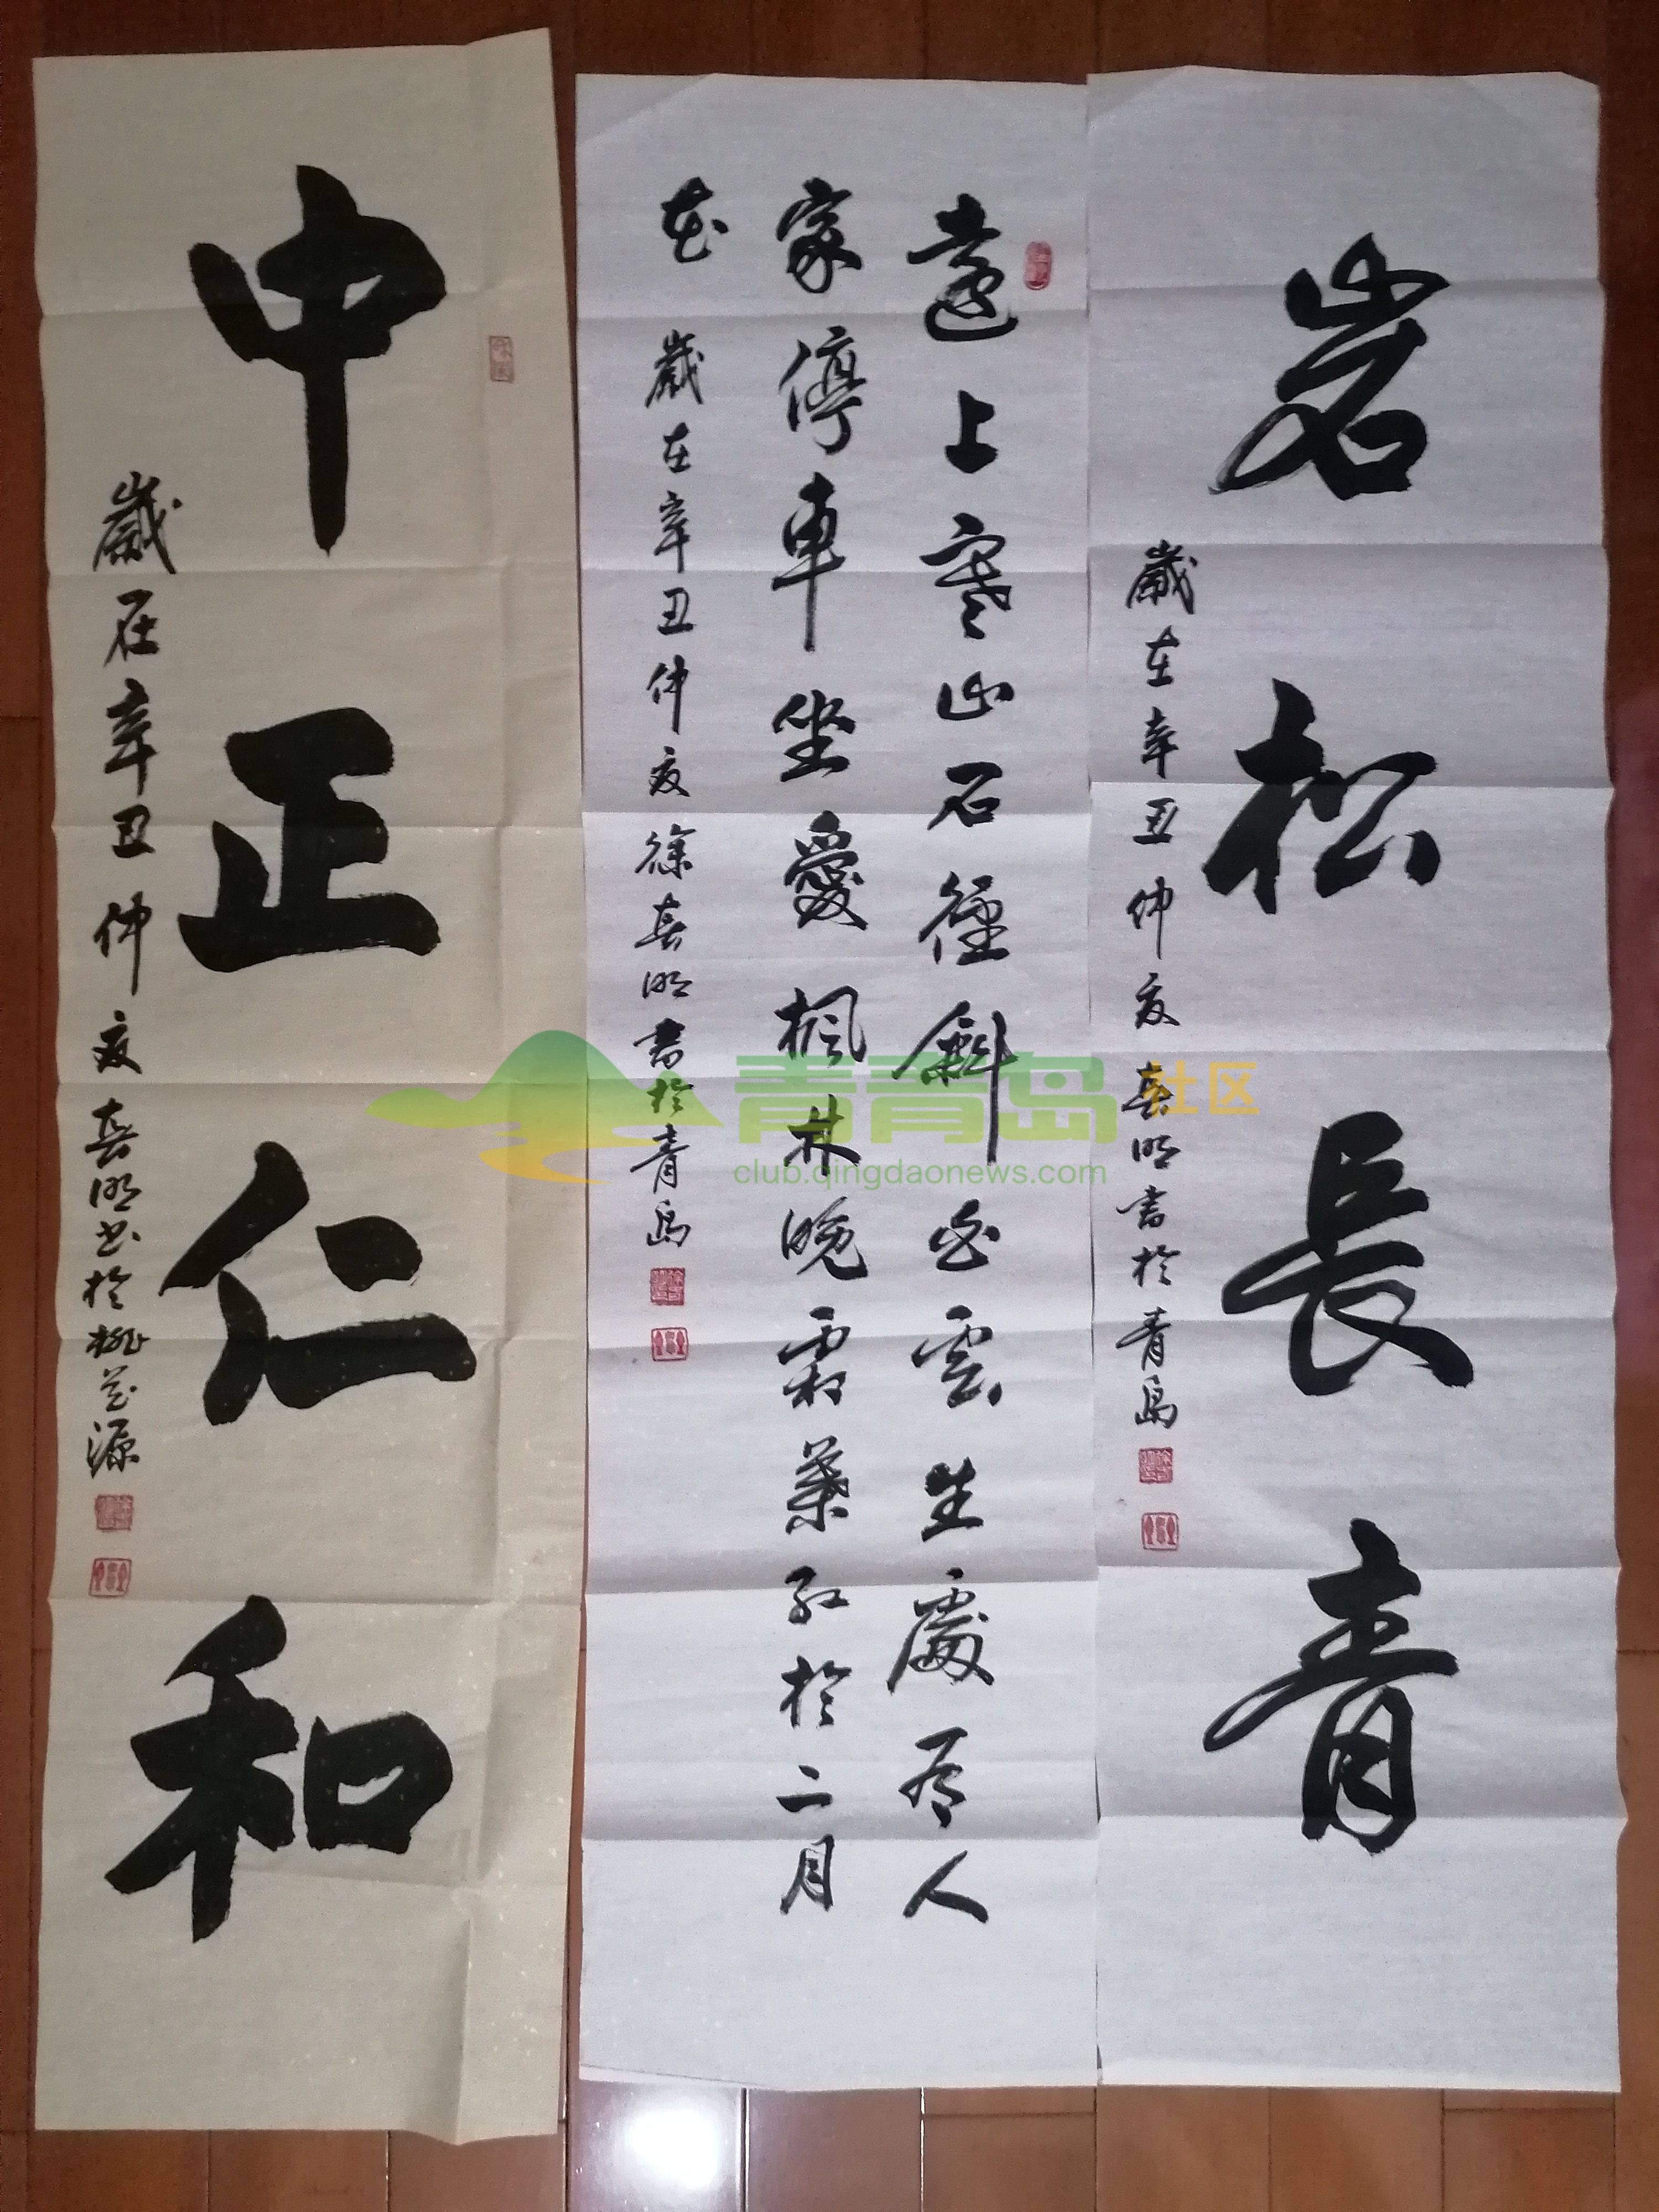 岩松長青
歲在辛丑仲夏春明書於青島
遠上寒山石徑斜白雲生處有人
家停車坐愛楓林晚霜葉紅於二月
花 歲在辛丑仲夏徐春明書於青島
中正仁和
歲在辛丑仲夏春明书於桃花源
青青岛社区
club.qingdaonews.com